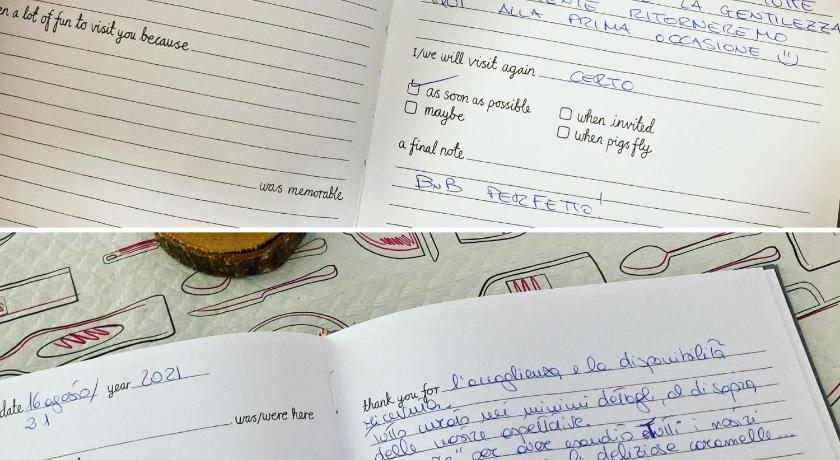 en a lot of fun to visit you because
was memorable
LA GENTILEZZA
RITORNEREMO
ALLA PRIMA OCCASIONE
I/we will visit again CERTO
as soon as possible
maybe
when invited
when pigs fly
a final note
BnB PERFETTO!
date 16 agosto/ year 2021
21
was/were here
thank you for l'accoglienza e la disponibilità
ricevuta.
Tutto curato nei minimi dettagli, al di sopra
delle nostre aspettative.
per aver esaudito tutti i nostri
le deliziose caramelle...